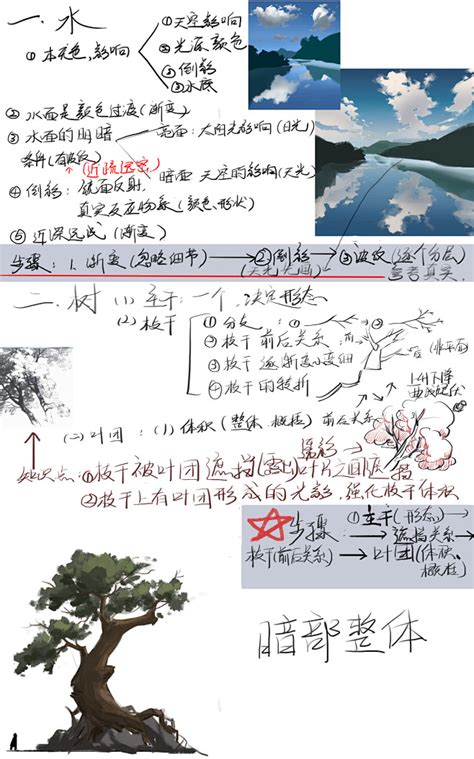 一.水
①本天色,影响
①天空影响
②光源颜色
③倒影
④水底
②水面是颜色过渡(渐变)
③水面的明暗
亮面:太阳光影响(日光)
条件(有波纹)
(近疏远密)
暗面 天空的影响(天光)
④倒影:镜面反射,
真实反应物象(颜色、形状)
⑤近深远浅(渐变)
步骤:1.渐变(忽略细节)→②倒影→③波纹(逐个分层)
参考真实.
二.树 (1)主干:一个.决定形态
(2)枝干
①分支:
②枝干前后关系:前
③枝干逐渐变小变细
④枝干的转折
后
(二)叶团:(1)体积(整体、概括)前后关系
知识点:①枝干被叶团遮挡(露出)叶片之间遮挡
②枝干上有叶团形成的光影,强化枝干体积
步骤:①主干(形态)→
枝干(前后关系)→遮挡关系
→叶团(体积、概括)
暗部整体